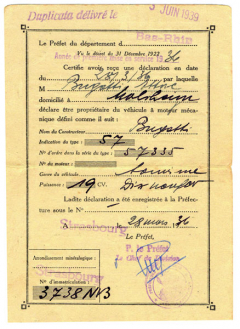 Duplicata délivré le 3 JUIN 1939
Le Préfet du département d Bas-Rhin
Vu le décret du 31 Décembre 1922
Certifie avoir reçu une déclaration en date
du par laquelle
M Bugatti
domicilié à Molsheim
déclare être propriétaire du véhicule à moteur méca-
nique défini comme il suit :
Nom du Constructeur: Bugatti
Indication du type : 57
N° d'ordre dans la série du type : 57335
N° du moteur :
Genre du véhicule
Puissance : 19 CV. Dix neuf
Ladite déclaration a été enregistrée à la Préfec-
ture sous le N°
A Strasbourg 28 mars 36
Le Préfet,
P. le Préfet
Le Chef de Division
Arrondissement minéralogique :
Strasbourg
N° d'immatriculation :
3738 NV3